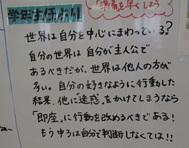 学年主任より
世界は自分を中心にまわっている?
自分の世界は自分が主人公で
あるべきだが、世界は他人の方が
多い。自分の好きなように行動した
結果、他に迷惑をかけてしまうなら
「即座」に行動を改めるべきである!
もう中3は自分で判断しなくては!!